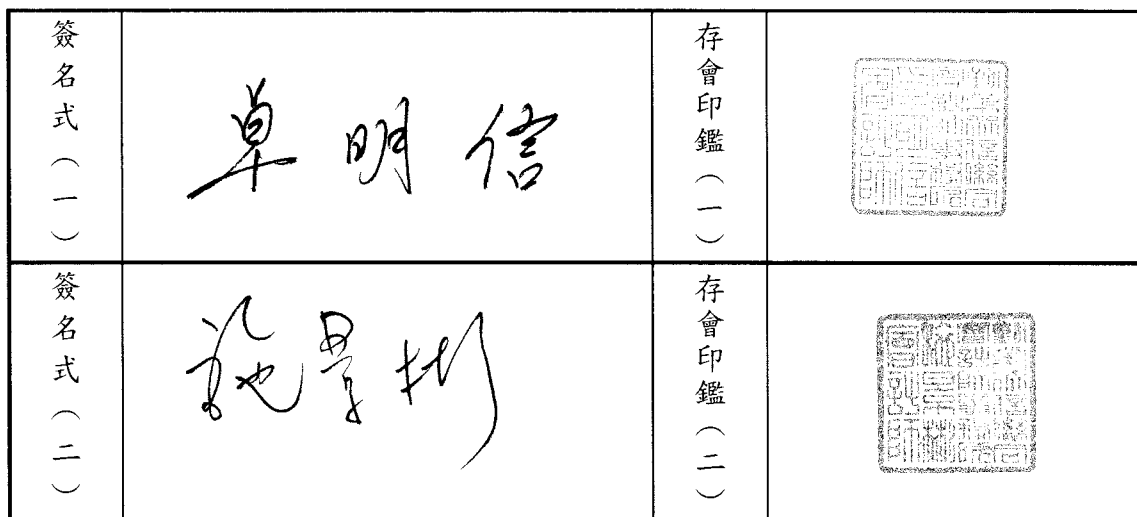 簽名式（一）
卓明信
存會印鑑（一）
簽名式（二）
施景彬
存會印鑑（二）